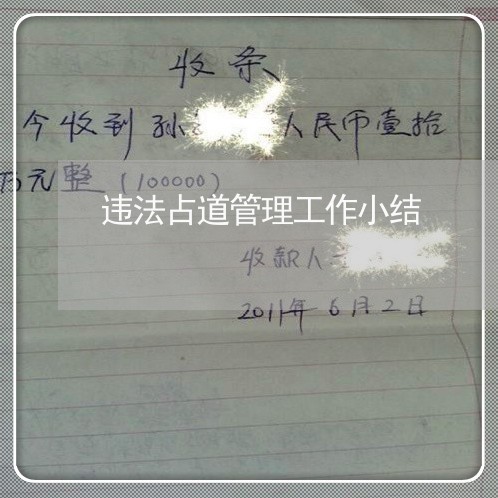 收条
今收到孙 人民币壹拾
万元整(100000)
违法占道管理工作小结
收款人
2011年6月2日